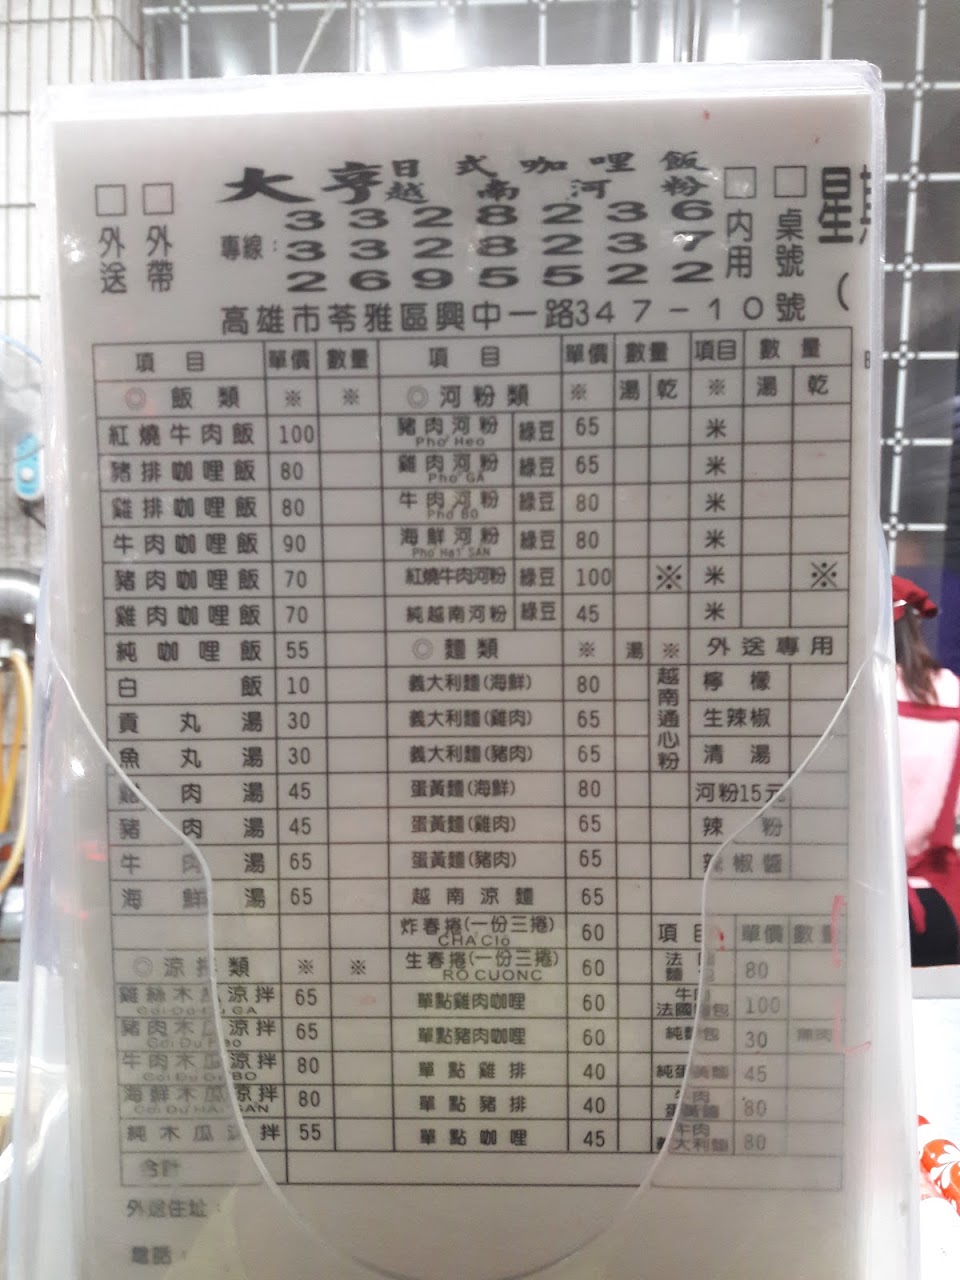 □外送 □外帶 大亨 日式咖哩飯 越南河粉 □內用 □桌號 星
專線:
3328236
3328237
2695522
(
高雄市苓雅區興中一路347-10號
項目 單價 數量 項目 單價 數量 項目 數量
◎飯類 ※ ※ ◎河粉類 ※ 湯 乾 ※ 湯 乾
紅燒牛肉飯 100 豬肉河粉 Pho Heo 綠豆 65 米
豬排咖哩飯 80 雞肉河粉 Pho GA 綠豆 65 米
雞排咖哩飯 80 牛肉河粉 Pho BO 綠豆 80 米
牛肉咖哩飯 90 海鮮河粉 Pho Hai SAN 綠豆 80 米
豬肉咖哩飯 70 紅燒牛肉河粉 綠豆 100 ※ 米 ※
雞肉咖哩飯 70 純越南河粉 綠豆 45 米
純咖哩飯 55 ◎麵類 ※ 湯 ※ 外送專用
白飯 10 義大利麵(海鮮) 80 越南通心粉 檸檬
貢丸湯 30 義大利麵(雞肉) 65 生辣椒
魚丸湯 30 義大利麵(豬肉) 65 清湯
雞肉湯 45 蛋黃麵(海鮮) 80 河粉15元
豬肉湯 45 蛋黃麵(雞肉) 65 辣粉
牛肉湯 65 蛋黃麵(豬肉) 65 辣椒醬
海鮮湯 65 越南涼麵 65
炸春捲(一份三捲) CHA Clo 60 項目 單價 數量
◎涼拌類 ※ ※ 生春捲(一份三捲) RO CUONC 60 法國麵包 80
雞絲木瓜涼拌 65 單點雞肉咖哩 60 牛肉法國麵包 100
豬肉木瓜涼拌 65 單點豬肉咖哩 60 純麵包 30
牛肉木瓜涼拌 80 單點雞排 40 純蛋黃麵 45
海鮮木瓜涼拌 80 單點豬排 40 牛肉蛋黃麵 80
純木瓜涼拌 55 單點咖哩 45 牛肉義大利麵 80
合計
外送住址:
電話: